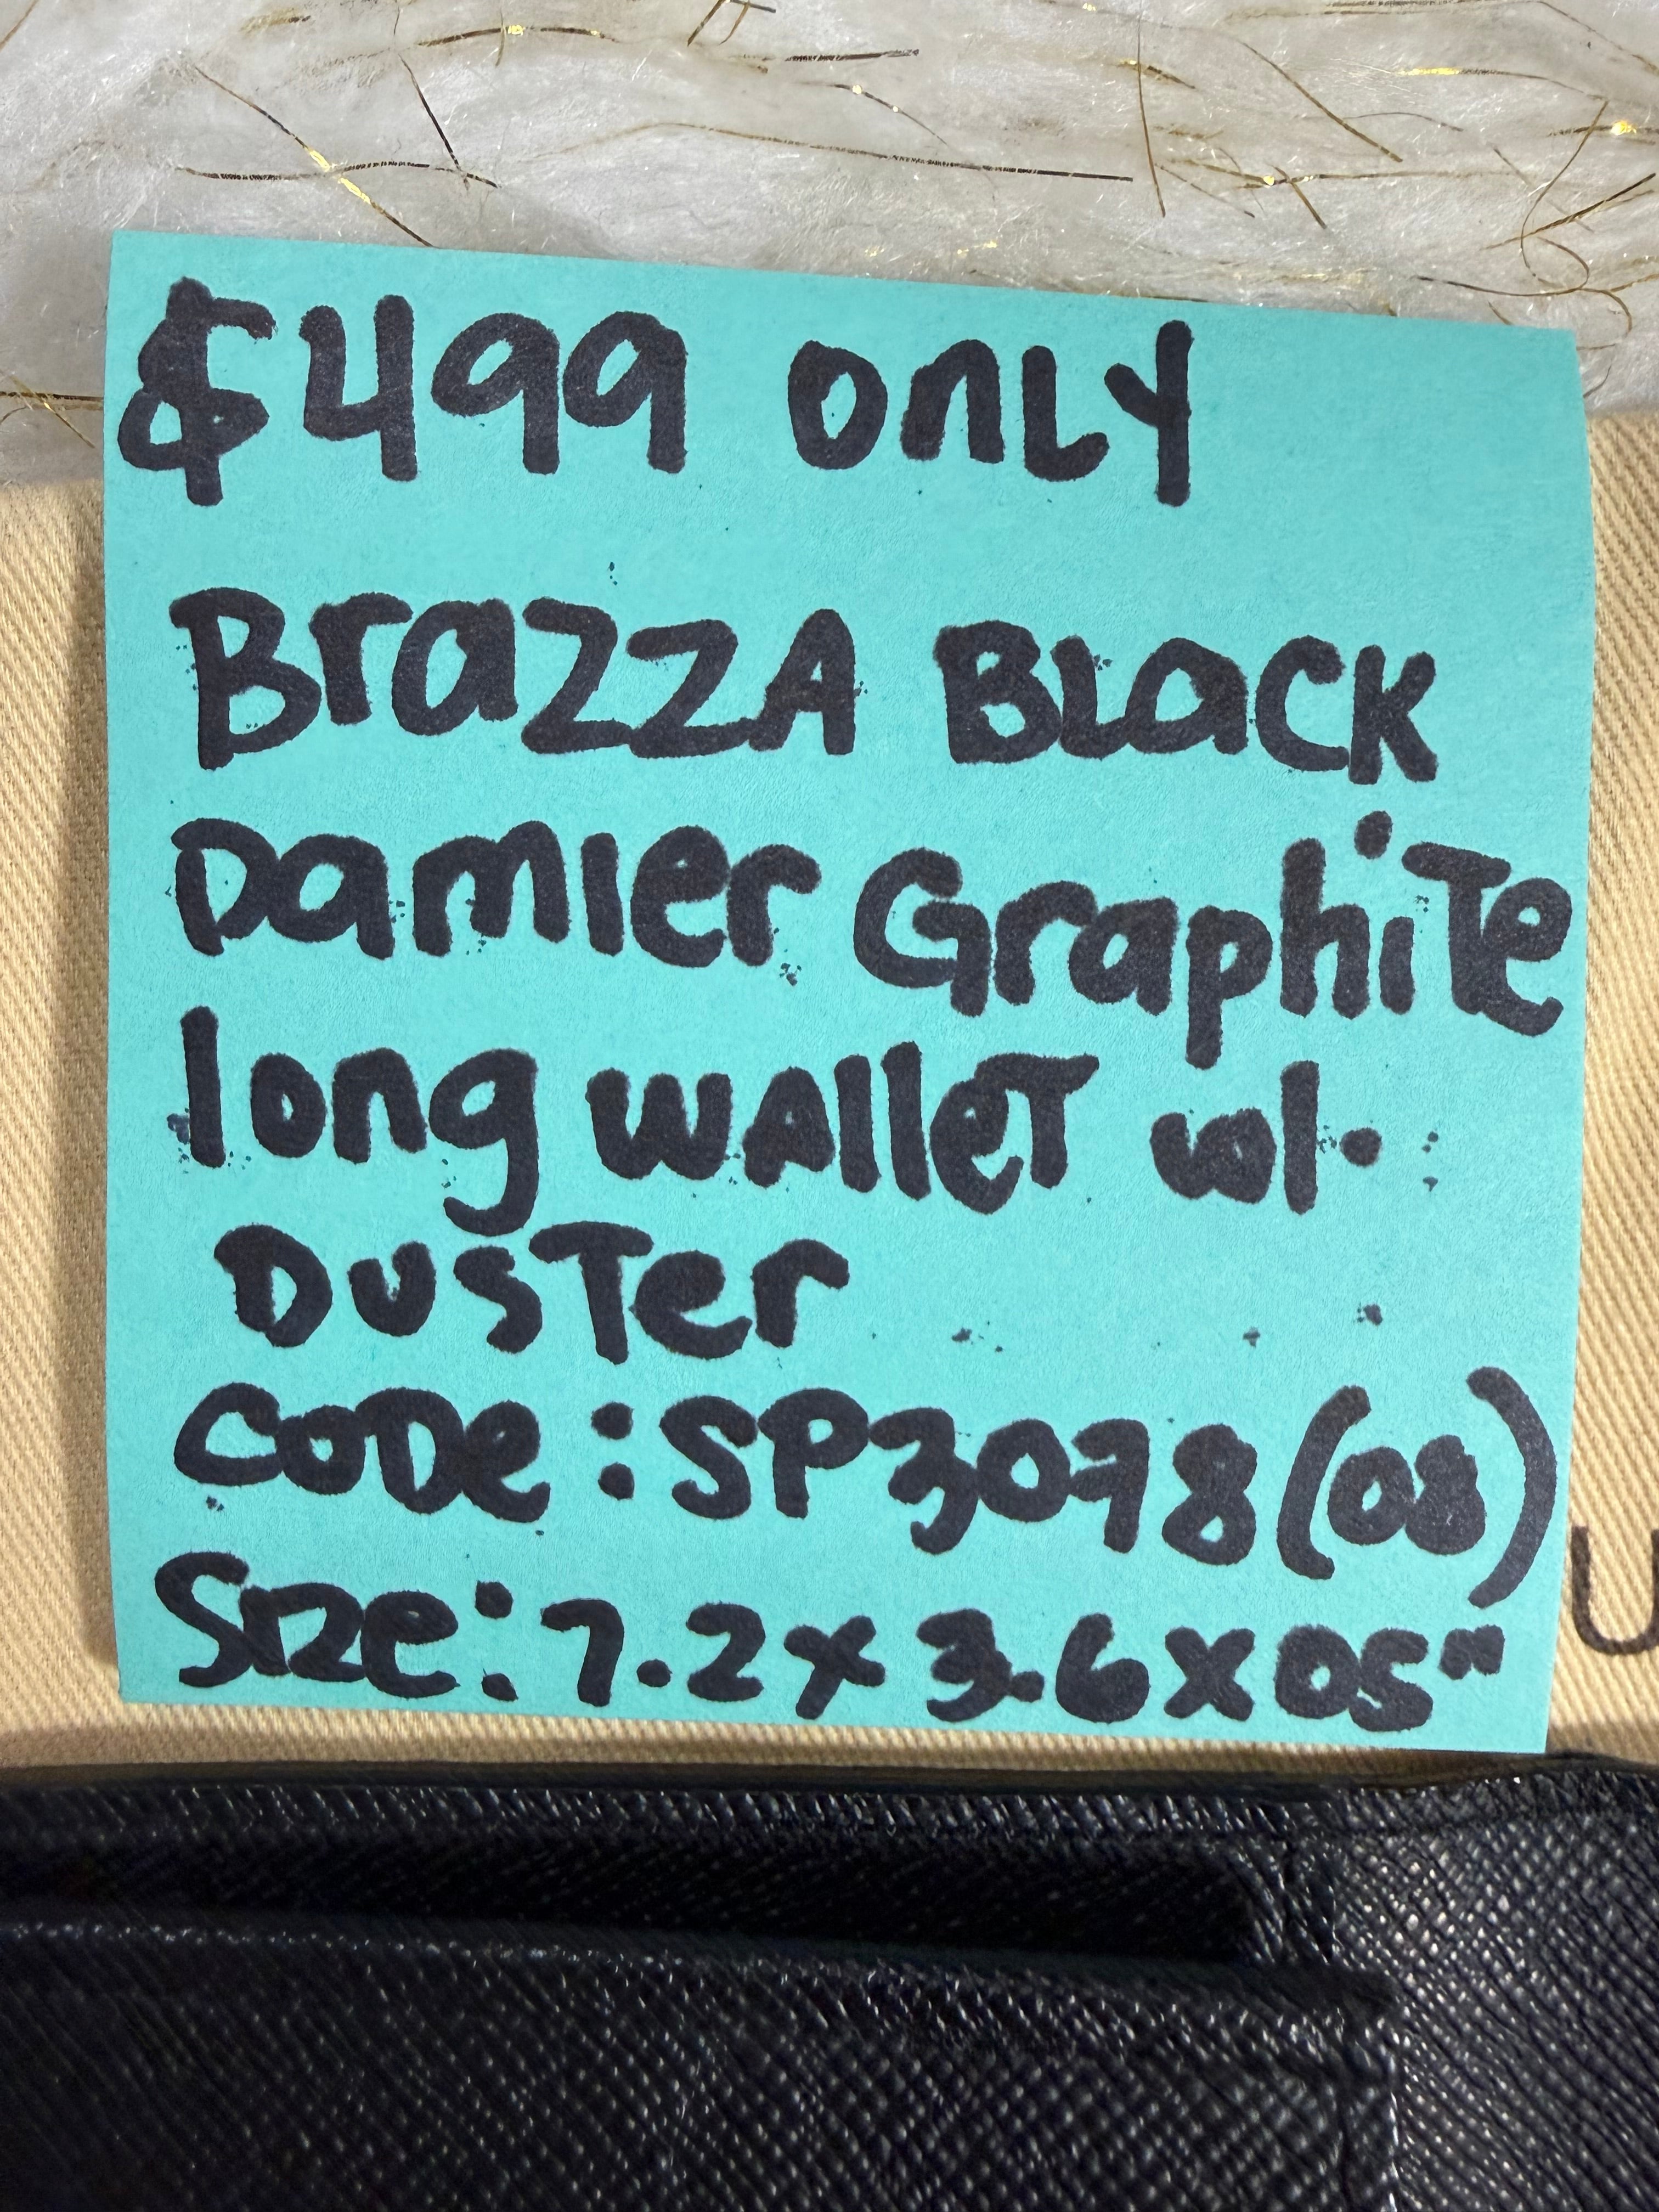 $499 only
BrazzA Black
Damier Graphite
long wallet w/.
Duster
Code: SP3078(08)
Size: 7.2 x 3.6 x 05"
U